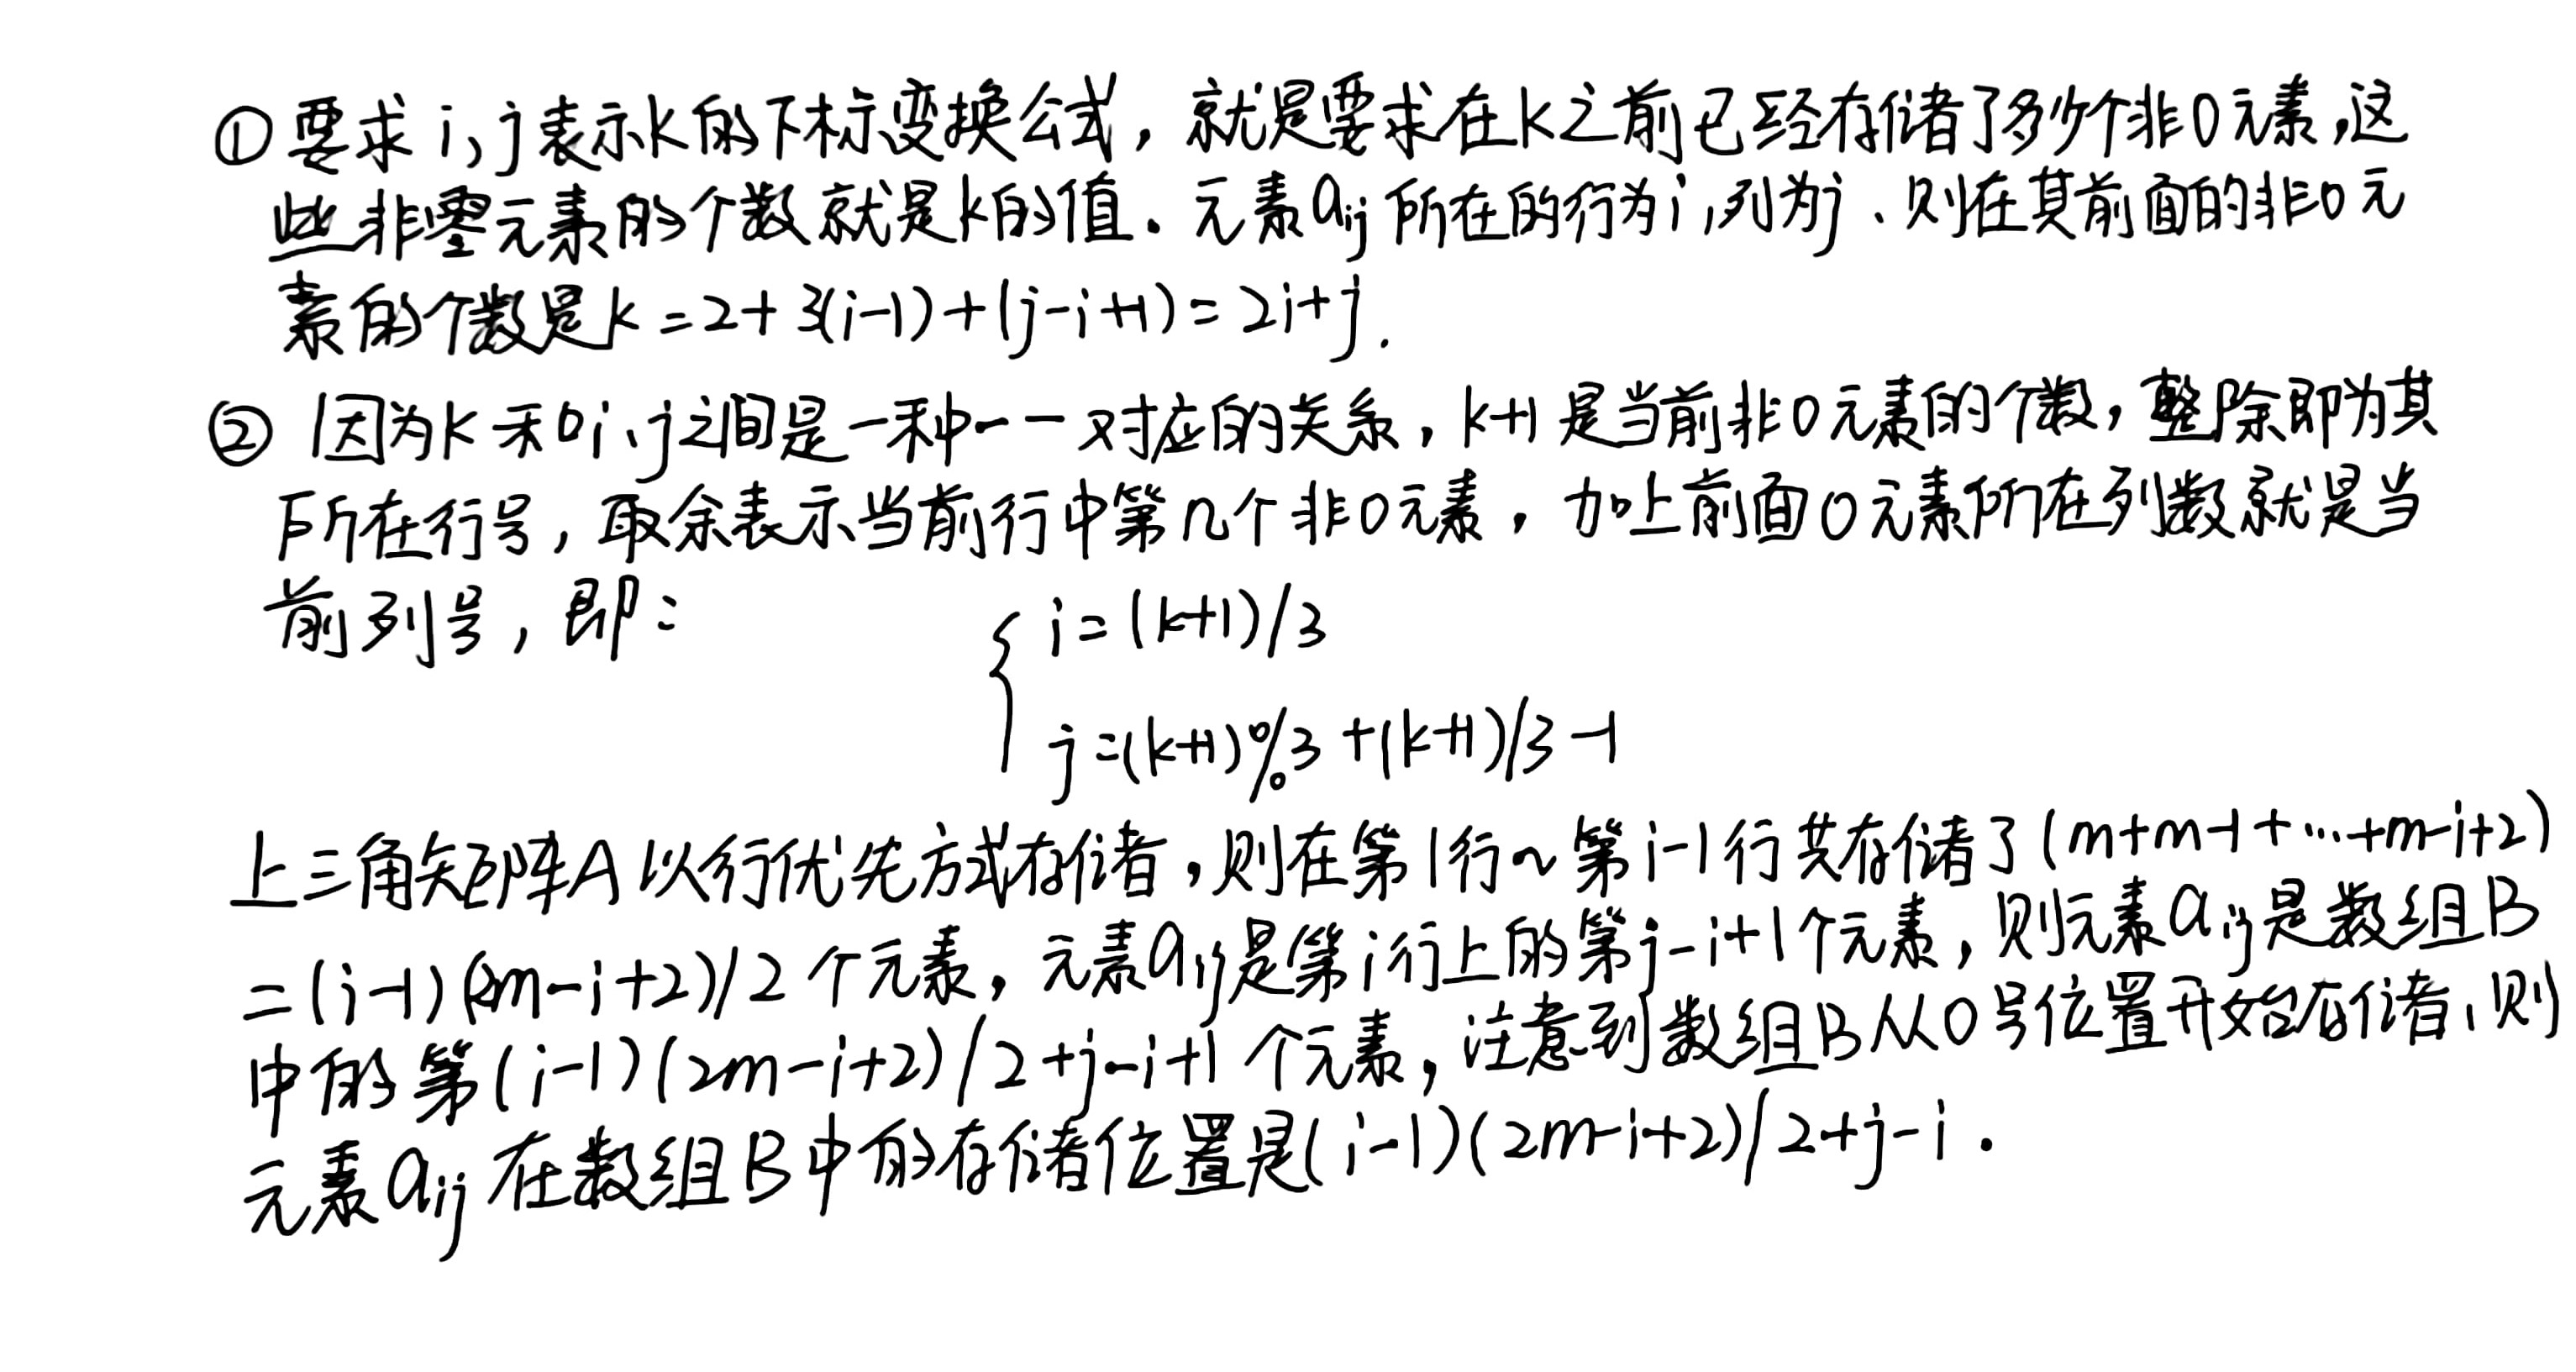 ①要求i,j表示k的下标变换公式，就是要求在k之前已经存储了多少个非0元素，这
些非零元素的个数就是k的值。元素aij所在的行为i,列为j、则在其前面的非0元
素的个数是k=2+3(i-1)+(j-i+1)=2i+j.
②因为k和i、j之间是一种一一对应的关系，k+1是当前非0元素的个数，整除即为其
所在行号，取余表示当前行中第几个非0元素，加上前面0元素所在列数就是当
前列号，即：
i=(k+1)/3
j=(k+1)%3+(k+1)/3-1
上三角矩阵A以行优先方式存储，则在第1行~第i-1行共存储了(m+m-1+…+m-i+2)
=(i-1)(2m-i+2)/2个元素，元素aij是第i行上的第j-i+1个元素，则元素aij是数组B
中的第(i-1)(2m-i+2)/2+j-i+1个元素，注意到数组B从0号位置开始存储，则
元素aij在数组B中的存储位置是(i-1)(2m-i+2)/2+j-i.